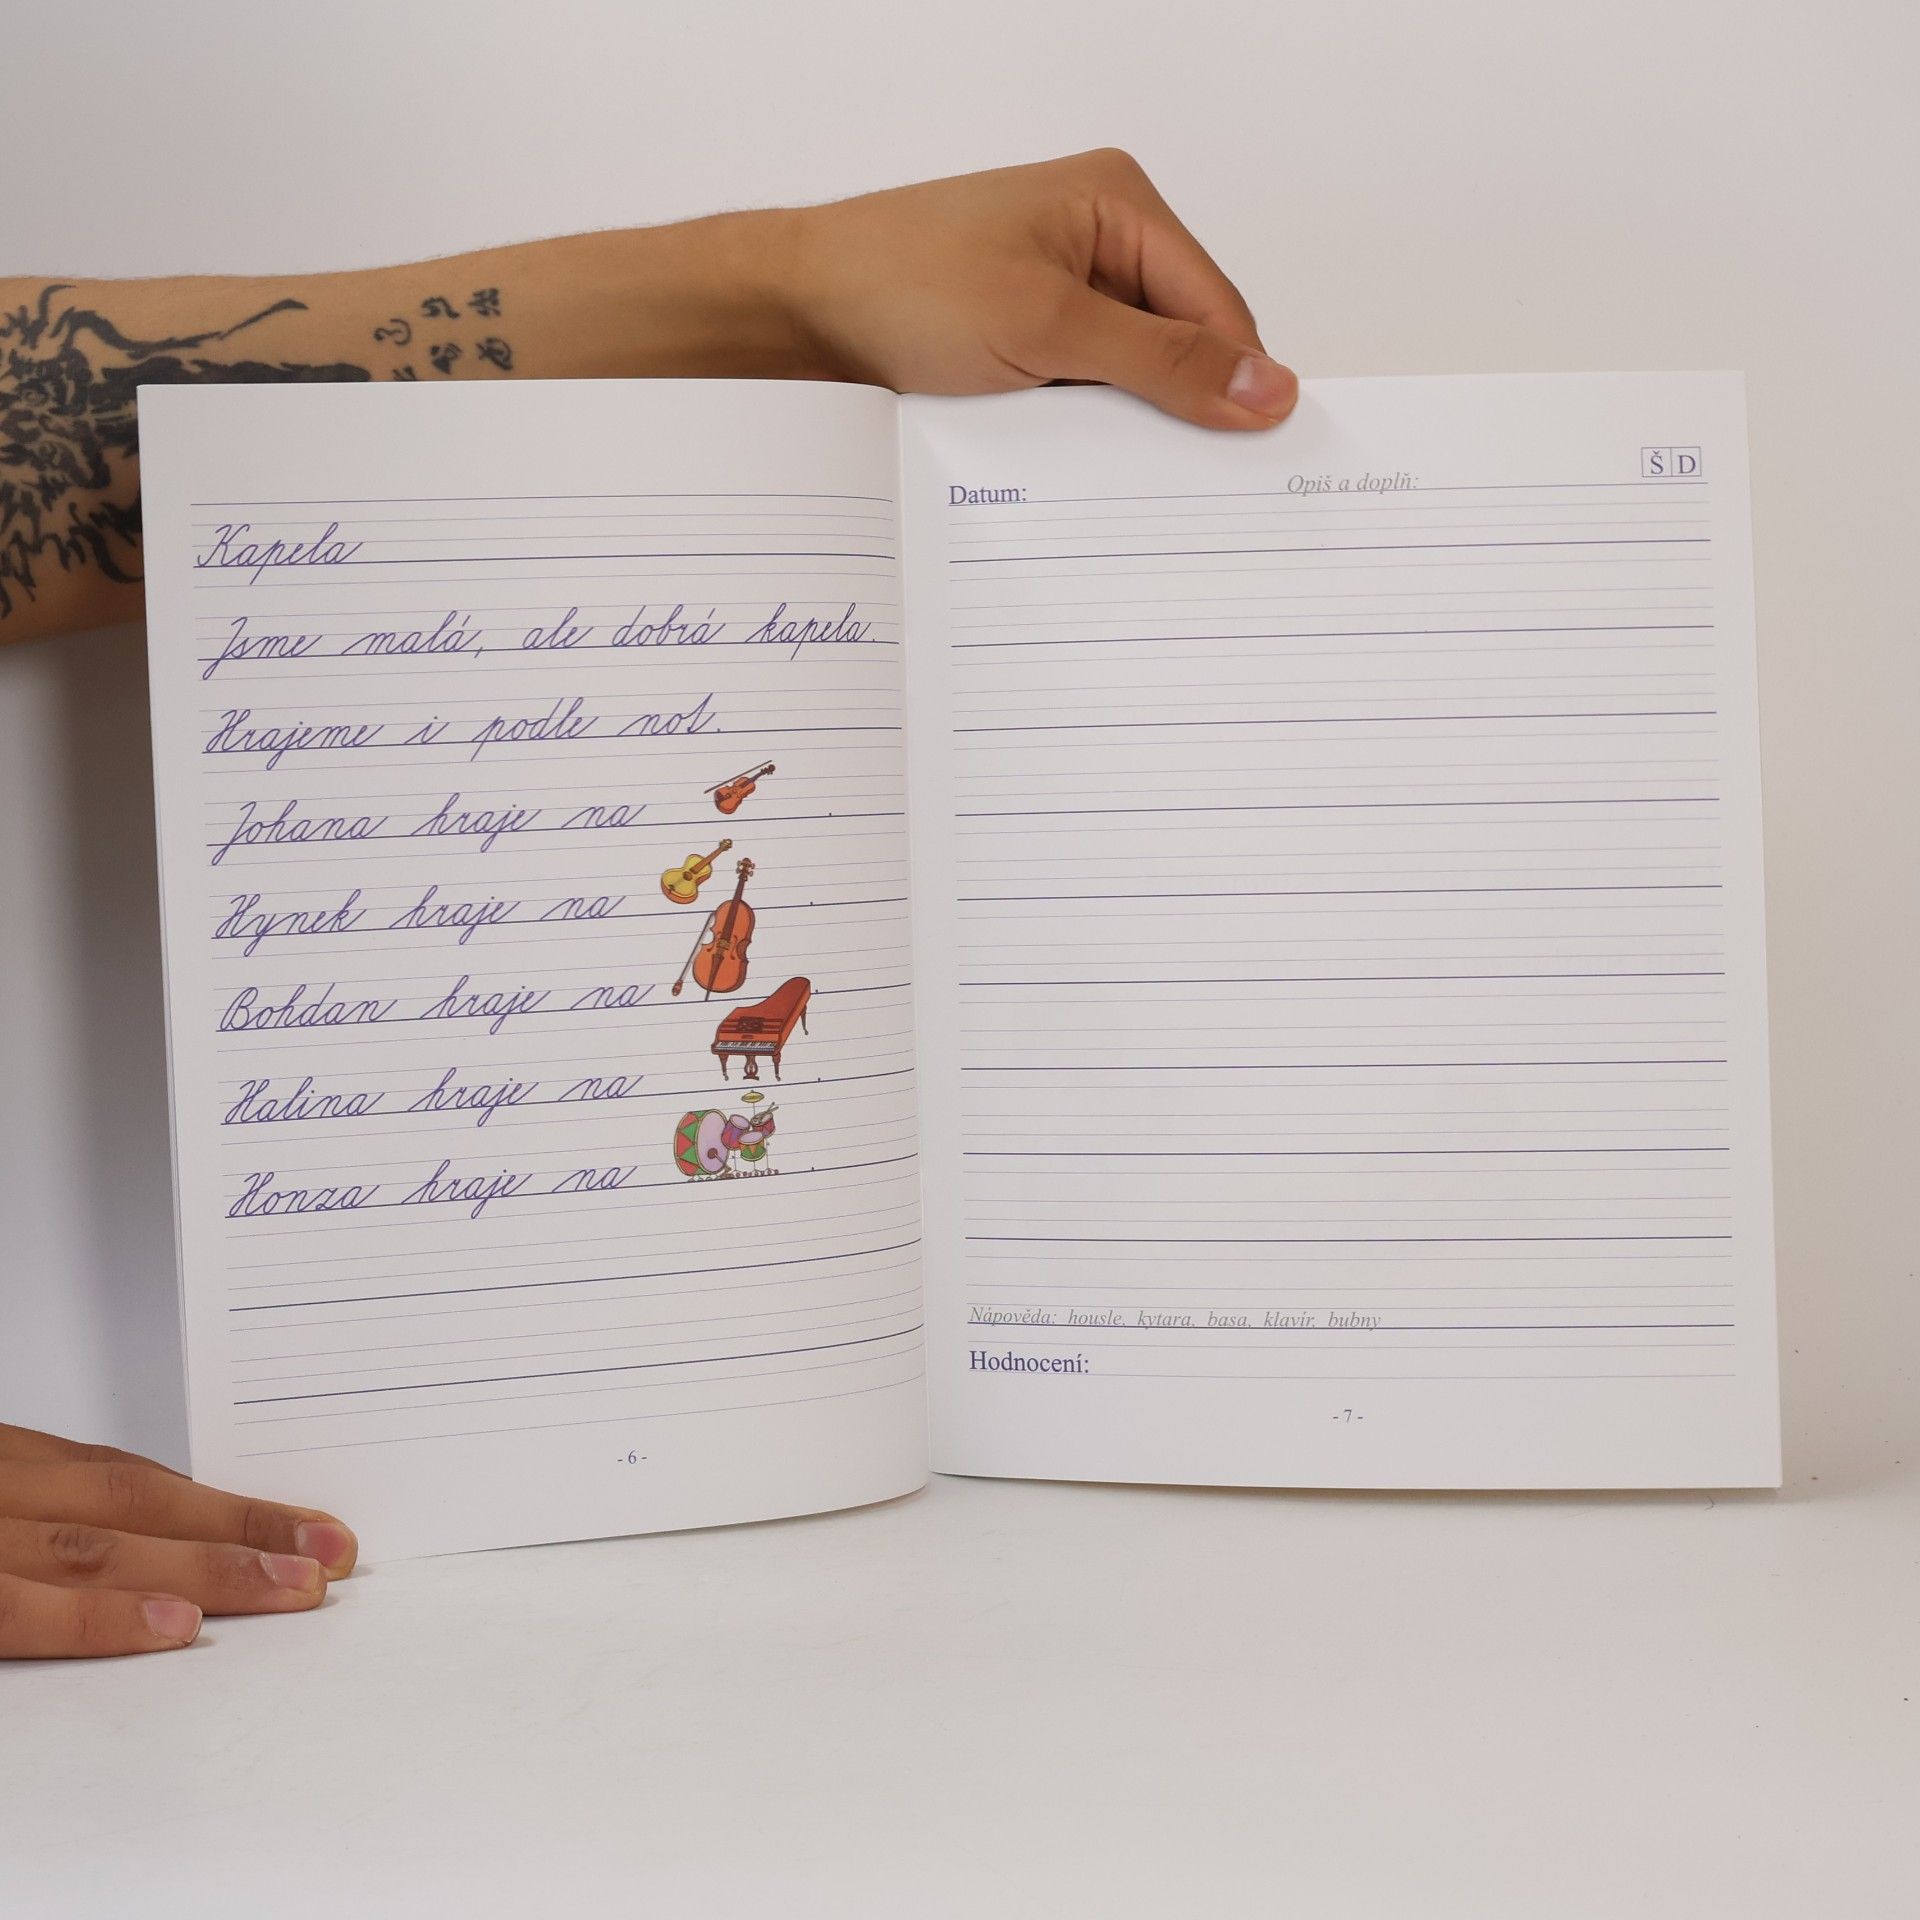 Kapela
Jsme malá, ale dobrá kapela.
Hrajeme i podle not.
Johana hraje na .
Hynek hraje na .
Bohdan hraje na .
Halina hraje na .
Honza hraje na .
- 6 -
Š D
Datum: Opiš a doplň:
Nápověda: housle, kytara, basa, klavír, bubny
Hodnocení:
- 7 -